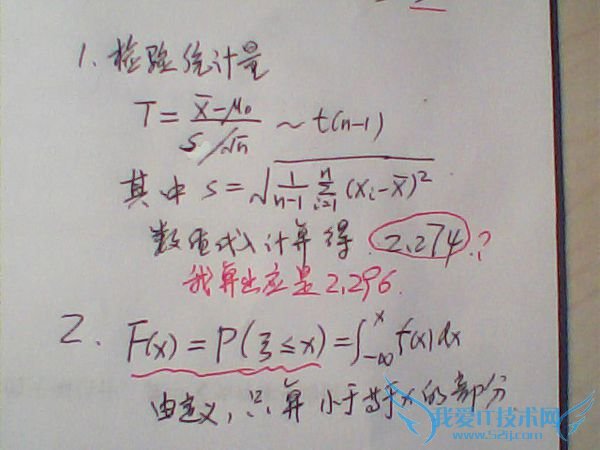 1. 检验统计量
T = (x̄ - μ₀) / (S/√n) ~ t(n-1)
其中 S = √(1/(n-1) Σᵢ₌₁ⁿ (xᵢ - x̄)²)
数值代入计算得 2.274 ?
我算出应是 2.296.
2. F(x) = P(ξ ≤ x) = ∫₋∞ˣ f(x) dx
由定义，只算小于等于x的部分
我爱IT技术网
www.52ij.com